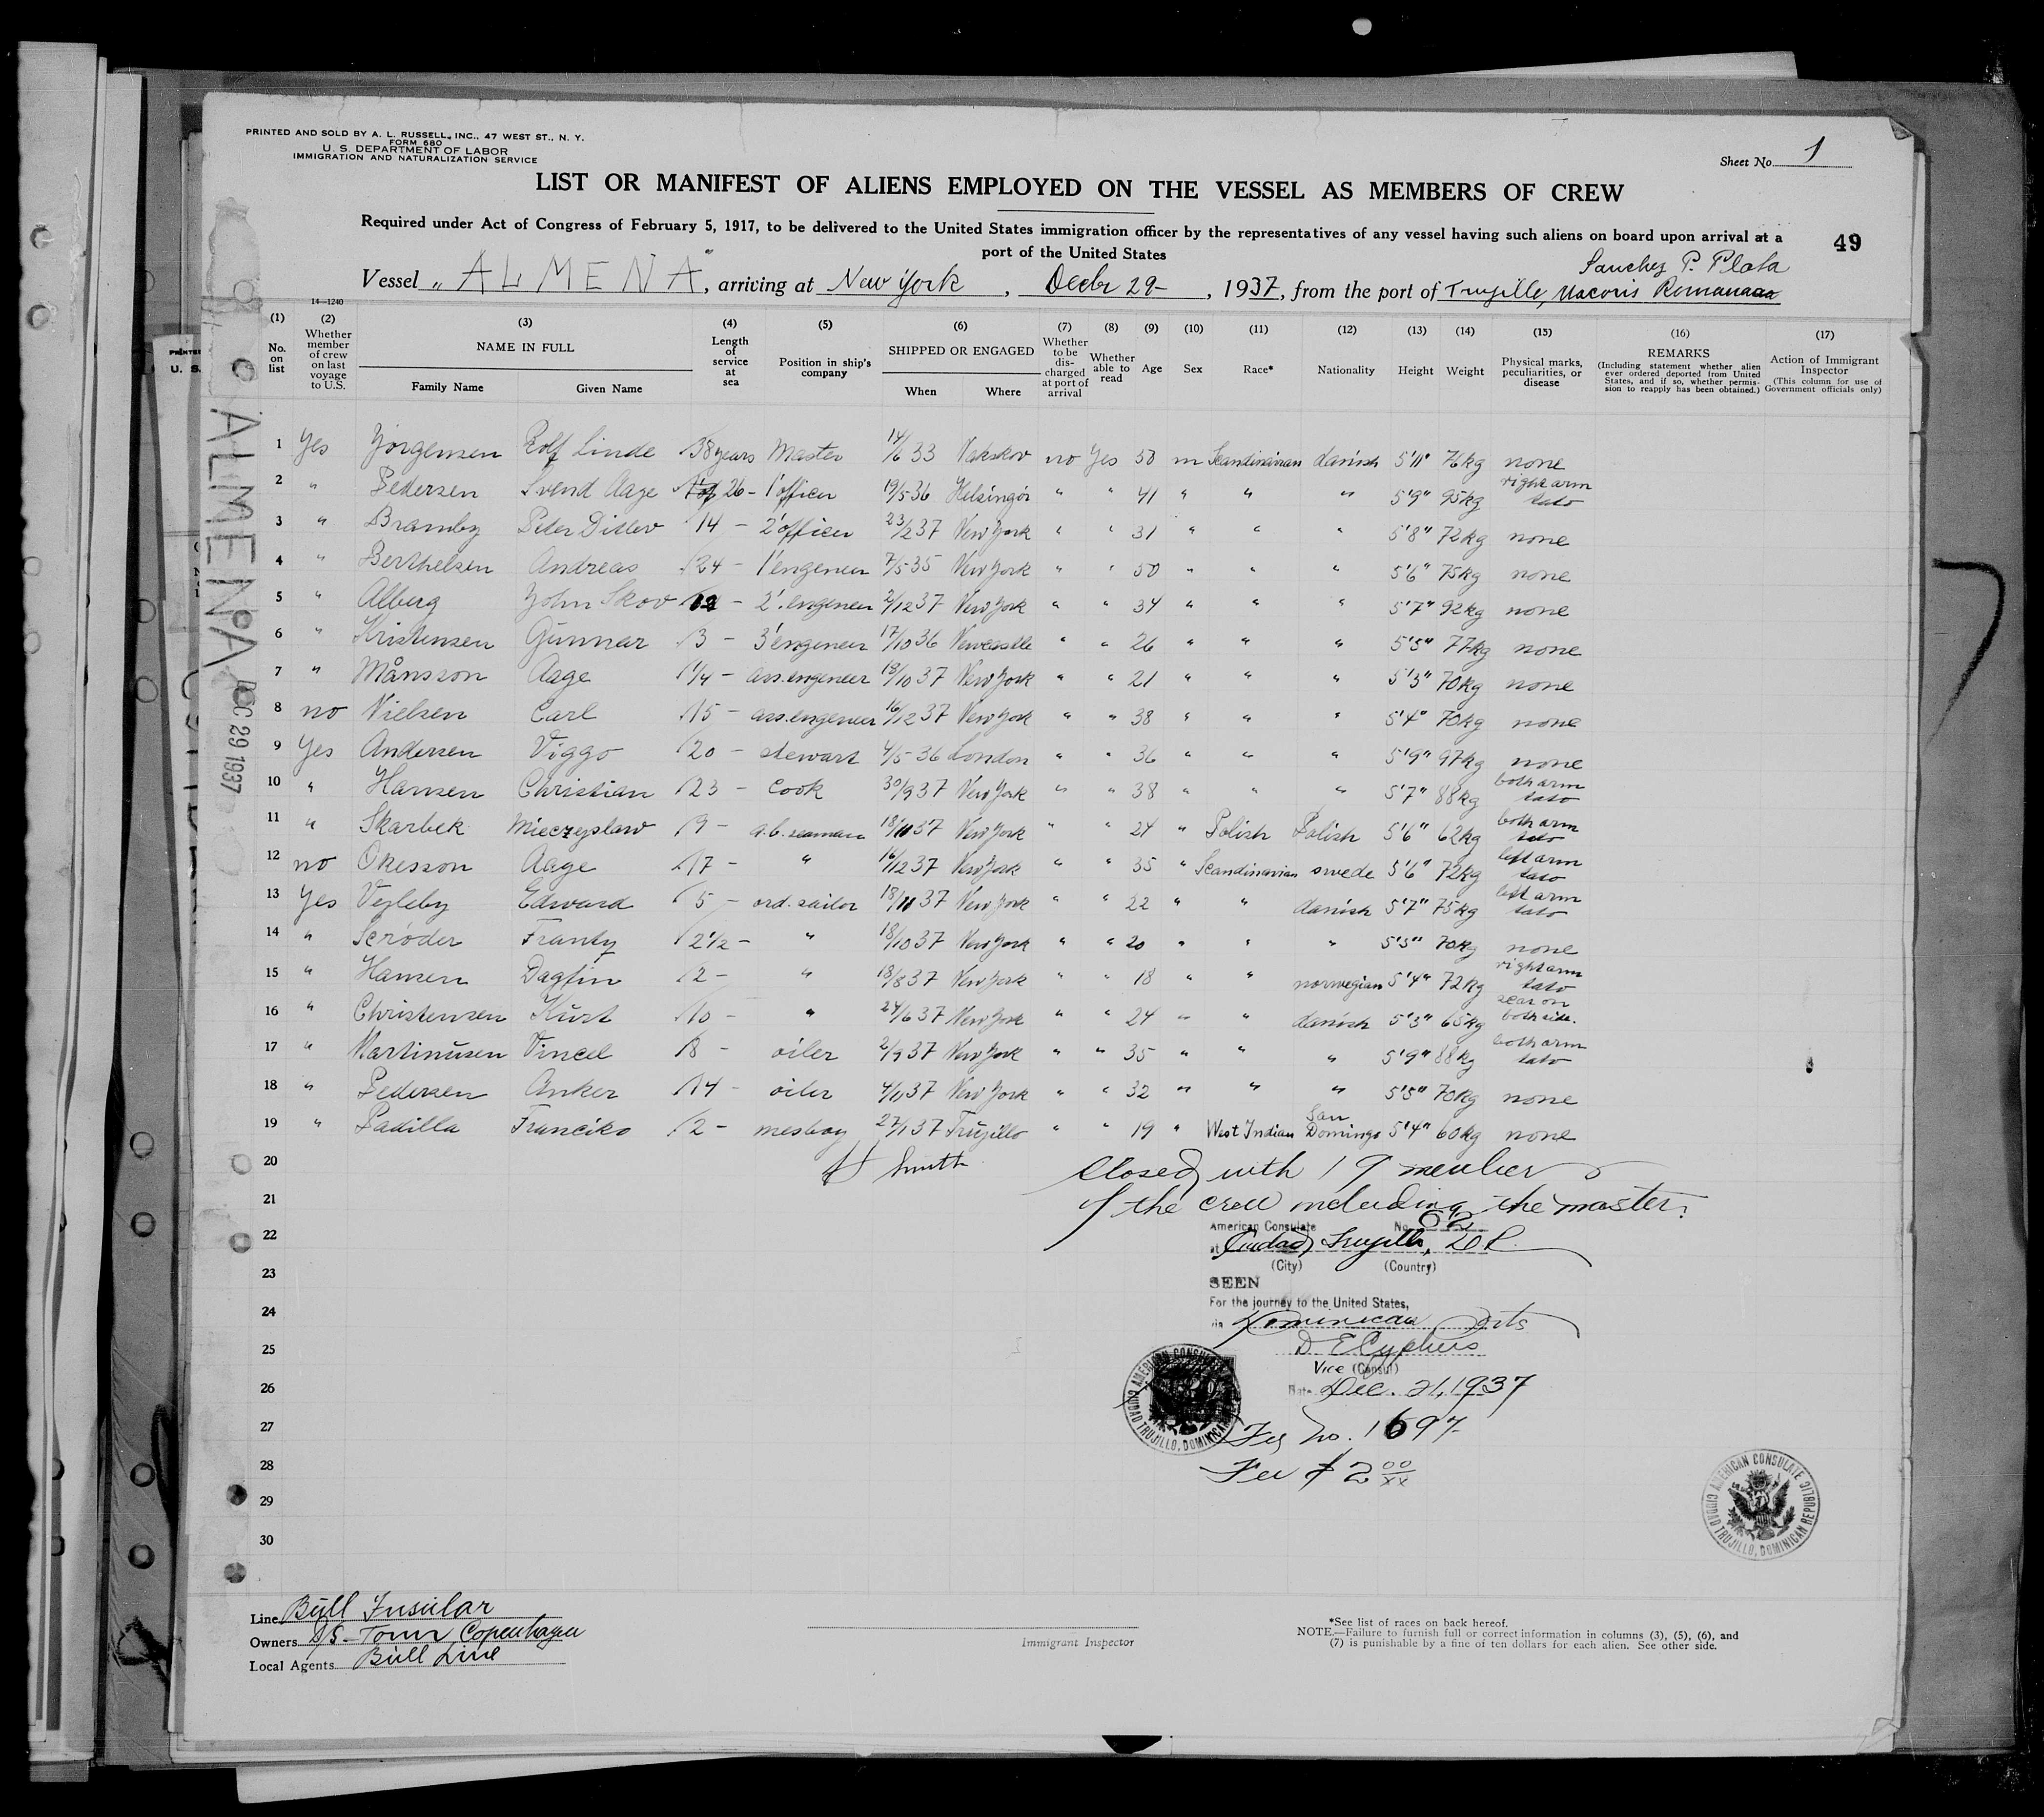 PRINTED AND SOLD BY A. L. RUSSELL, INC., 47 WEST ST., N. Y.
FORM 680
U. S. DEPARTMENT OF LABOR
IMMIGRATION AND NATURALIZATION SERVICE
Sheet No. 1
LIST OR MANIFEST OF ALIENS EMPLOYED ON THE VESSEL AS MEMBERS OF CREW
Required under Act of Congress of February 5, 1917, to be delivered to the United States immigration officer by the representatives of any vessel having such aliens on board upon arrival at a
port of the United States
49
Sanchez P. Plata
Vessel "ALMENA", arriving at New York, Decbr 29-, 1937, from the port of Trujillo, Macoris Romana
14—1240
(1) No. on list
(2) Whether member of crew on last voyage to U.S.
(3) NAME IN FULL Family Name Given Name
(4) Length of service at sea
(5) Position in ship's company
(6) SHIPPED OR ENGAGED When Where
(7) Whether to be discharged at port of arrival
(8) Whether able to read
(9) Age
(10) Sex
(11) Race*
(12) Nationality
(13) Height
(14) Weight
(15) Physical marks, peculiarities, or disease
(16) REMARKS (Including statement whether alien ever ordered deported from United States, and if so, whether permission to reapply has been obtained.)
(17) Action of Immigrant Inspector (This column for use of Government officials only)
1 Yes Jörgensen Rolf Linde 38 years Master 14/6 33 Nakskov no Yes 50 m Scandinavian danish 5'11" 76kg none
2 " Pedersen Svend Aage 26 - 1' officer 19/5 36 Helsingör " " 41 " " " 5'9" 95kg right arm tato
3 " Bramby Peter Ditlev 14 - 2' officer 23/2 37 New York " " 31 " " " 5'8" 72kg none
4 " Berthelsen Andreas 24 - 1' engeneer 7/5-35 New York " " 50 " " " 5'6" 75kg none
5 " Alberg John Skov 12 - 2'. engeneer 2/12 37 New York " " 34 " " " 5'7" 92kg none
6 " Kristensen Gunnar 3 - 3' engeneer 17/10 36 Newcastle " " 26 " " " 5'5" 77kg none
7 " Månsson Aage 1/4 - ass.engeneer 18/10 37 New York " " 21 " " " 5'3" 70kg none
8 no Nielsen Carl 15 - ass.engeneer 16/12 37 New York " " 38 " " " 5'4" 70kg none
9 Yes Andersen Viggo 20 - stewart 4/5-36 London " " 36 " " " 5'9" 97kg none
10 " Hansen Christian 23 - cook 30/9 37 New York " " 38 " " " 5'7" 88kg both arm tato
11 " Skarbek Mieczyslaw 9 - a.b. seaman 18/11 37 New York " " 24 " Polish Polish 5'6" 62kg both arm tato
12 no Okesson Aage 17 - " 16/12 37 New York " " 35 " Scandinavian swede 5'6" 72kg left arm tato
13 Yes Vejleby Edward 5 - ord. sailor 18/11 37 New York " " 22 " " danish 5'7" 75kg left arm tato
14 " Scröder Frantz 2 1/2 - " 18/10 37 New York " " 20 " " " 5'5" 70kg none
15 " Hansen Dagfin 2 - " 18/8 37 New York " " 18 " " norwegian 5'4" 72kg right arm tato
16 " Christensen Kurt 10 - " 24/6 37 New York " " 24 " " danish 5'3" 65kg scar on both side.
17 " Martinusen Vincel 8 - oiler 2/9 37 New York " " 35 " " " 5'9" 88kg both arm tato
18 " Pedersen Anker 14 - oiler 4/11 37 New York " " 32 " " " 5'5" 70kg none
19 " Padilla Franciko 2 - mesboy 27/1 37 Trujillo " " 19 " West Indian San Domingo 5'4" 60kg none
20
Smith
Closed with 19 members
21
of the crew including the master.
22
American Consulate No. 52
at Ciudad Trujillo, D.R.
(City) (Country)
23
SEEN
For the journey to the United States,
24
via Dominican Ports
25
D. E. Cyphers
Vice (Consul)
26
Date Dec. 21, 1937
27
Fee No. 1697
28
Fee $ 2 00/xx
29
30
AMERICAN CONSULATE CIUDAD TRUJILLO, DOMINICAN
AMERICAN CONSULATE CIUDAD TRUJILLO, DOMINICAN REPUBLIC
Line Bull Insular
Owners D/S- Torm, Copenhagen
Local Agents Bull Line
Immigrant Inspector
*See list of races on back hereof.
NOTE.—Failure to furnish full or correct information in columns (3), (5), (6), and
(7) is punishable by a fine of ten dollars for each alien. See other side.
ALMENA
DEC 29 1937